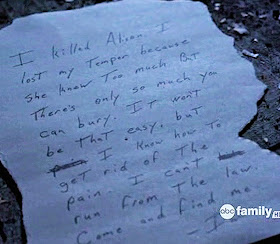 I killed Alison. I
lost my temper because
she knew too much. But
There's only so much you
can bury. IT won't
be that easy, but
I know how to
get rid of The
pain. I can't
run from The law.
Come and find me
I
abc family
abc family